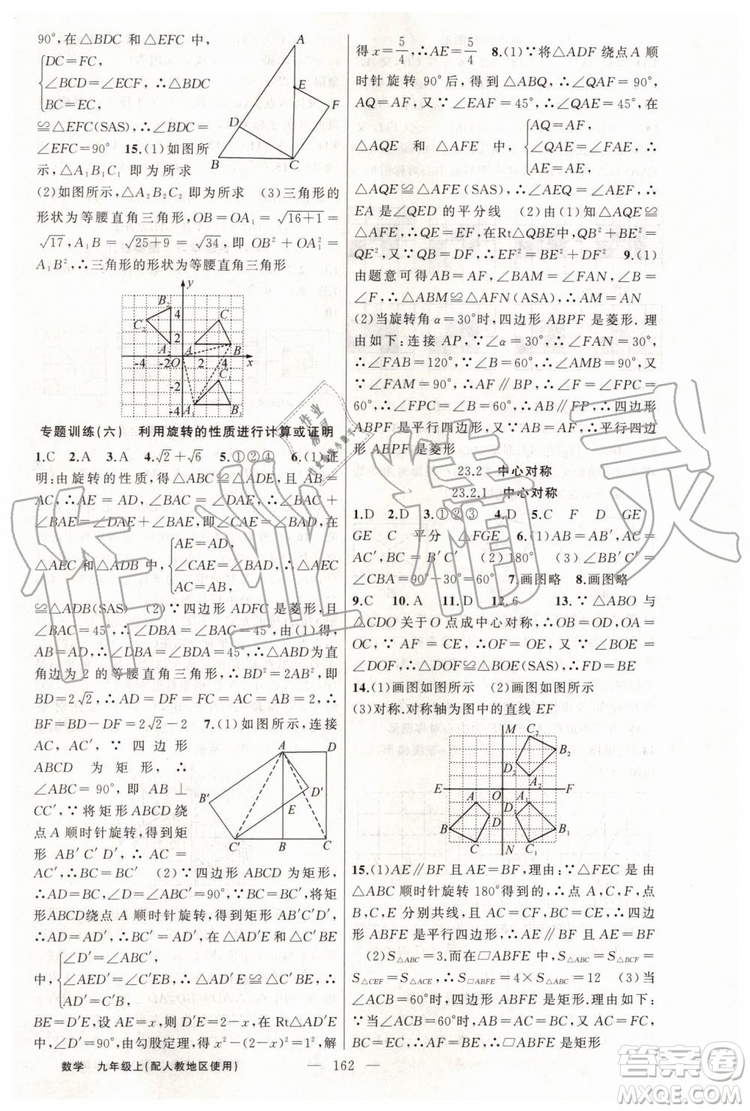 90°,在△BDC和△EFC中,
DC=FC,
∠BCD=∠ECF,
BC=EC,
≌△EFC(SAS),∴∠BDC=
∠EFC=90° 15.(1)如图所
示,△A₁B₁C₁ 即为所求
(2)如图所示,△A₂B₂C₂ 即为所求 (3)三角形的
形状为等腰直角三角形,OB=OA₁=√16+1=
√17,A₁B=√25+9=√34,即 OB²+OA₁²=
A₁B²,∴三角形的形状为等腰直角三角形
专题训练(六) 利用旋转的性质进行计算或证明
1.C 2.A 3.A 4.√2+√6 5.①②④ 6.(1)证
明:由旋转的性质,得△ABC≌△ADE,且 AB=
AC,∴AE=AD,AC=AB,∠BAC=∠DAE,∴∠BAC+
∠BAE=∠DAE+∠BAE,即∠CAE=∠DAB,在
△AEC 和△ADB 中,
AE=AD,
∠CAE=∠DAB,
AC=AB,
∴△AEC
≌△ADB(SAS) (2)∵四边形 ADFC 是菱形,且
∠BAC=45°,∴∠DBA=∠BAC=45°,由(1)得AB=
AD,∴∠DBA=∠BDA=45°,∴△ABD 是直角
边为 2 的等腰直角三角形,∴BD²=2AB²,即
BD=2√2,∴AD=DF=FC=AC=AB=2,∴
BF=BD-DF=2√2-2 7.(1)如图所示,连接
AC,AC′,∵四边形
ABCD 为矩形,∴
∠ABC=90°,即 AB⊥
CC′,∵将矩形 ABCD
绕点 A 顺时针旋转,得到
矩形 AB′C′D′,∴AC=
AC′,∴BC=BC′ (2)∵四边形 ABCD 为矩形,
∴AD=BC,∠D=∠ABC′=90°,∵BC=BC′,
∴BC′=AD′,∵将矩形
ABCD绕点 A 顺时针旋转,得到矩形 AB′C′D′,
∴AD=AD′,∴BC′=AD′,在△AD′E 与△C′BE
中,
∠D′=∠ABC′,
∠AED′=∠C′EB,
AD′=BC′,
∴△AD′E≌△C′BE,∴
BE=D′E,设AE=x,则D′E=2-x,在 Rt△AD′E
中,∠D′=90°,由勾股定理,得x²-(2-x)²=1,解
得x=5/4,∴AE=5/4 8.(1)∵将△ADF 绕点 A 顺
时针旋转 90°后,得到△ABQ,∴∠QAF=90°,
AQ=AF,又∵∠EAF=45°,∴∠QAE=45°,在
△AQE 和△AFE 中,
AQ=AF,
∠QAE=∠FAE,
AE=AE,
∴
△AQE≌△AFE(SAS),∴∠AEQ=∠AEF,∴
EA 是∠QED 的平分线 (2)由(1)知△AQE≌
△AFE,∴QE=EF,在Rt△QBE中,QB²+BE²=
QE²,又∵QB=DF,∴EF²=BE²+DF² 9.(1)
由题意可得AB=AF,∠BAM=∠FAN,∠B=
∠F,∴△ABM≌△AFN(ASA),∴AM=AN
(2)当旋转角α=30°时,四边形 ABPF 是菱形.理
由:连接 AP,∵∠α=30°,∴∠FAN=30°,∴
∠FAB=120°,∵∠B=60°,∴∠AMB=90°,又
∵∠FAM=90°,∴∠AMB=∠FAM,∴AF∥
BC,又∵∠F=60°,∴∠FPC=60°,∴∠FPC=
∠B,∴AB∥FP,∴四边形ABPF 是平行四边形,
∵AB=AF,∴四边形
ABPF 是菱形
23.2 中心对称
23.2.1 中心对称
1.D 2.D 3.①②③ 4.D 5.C F D GE
GE C 平分 △FGE 6.(1)AB=A′B′,AC=
A′C′,BC=B′C′ (2)180° (3)∵∠BB′C′=
∠CBA=90°-30°=60° 7.画图略 8.画图略
9.C 10.A 11.D 12.6 13.∵△ABO 与
△CDO 关于 O 点成中心对称,∴OB=OD,OA=
OC,∵AF=CE,∴OF=OE,∵∠BOE=
∠DOF,∴△DOF≌△BOE(SAS),∴FD=BE
14.(1)画图如图所示 (2)画图如图所示
(3)对称.对称轴为图中的直线 EF
15.(1)AE∥BF 且 AE=BF.理由:∵△FEC 是由
△ABC 顺时针旋转 180°得到的,∴点 A,C,F 和点
B,C,E 分别共线,∴AC=CF,BC=CE,∴四边
形 ABFE 是平行四边形,∴AE∥BF,AE=BF
(2)S△ABC=3,而在▱ABFE 中,∵S△ABC=
S△CEF=S△BCF=S△ACE,∴S▱ABFE=4×S△ABC=12 (3)当
∠ACB=60°时,四边形 ABFE 是矩形.理由:∵
∠ACB=60°,AB=AC,∴△ABC为等边三角形,
∴BC=AC,∴AF=BE,∴四边形 ABFE 是矩形
数学 九年级上(配人教地区使用)
— 162 —
作业精灵
答案圈
MXQE.COM